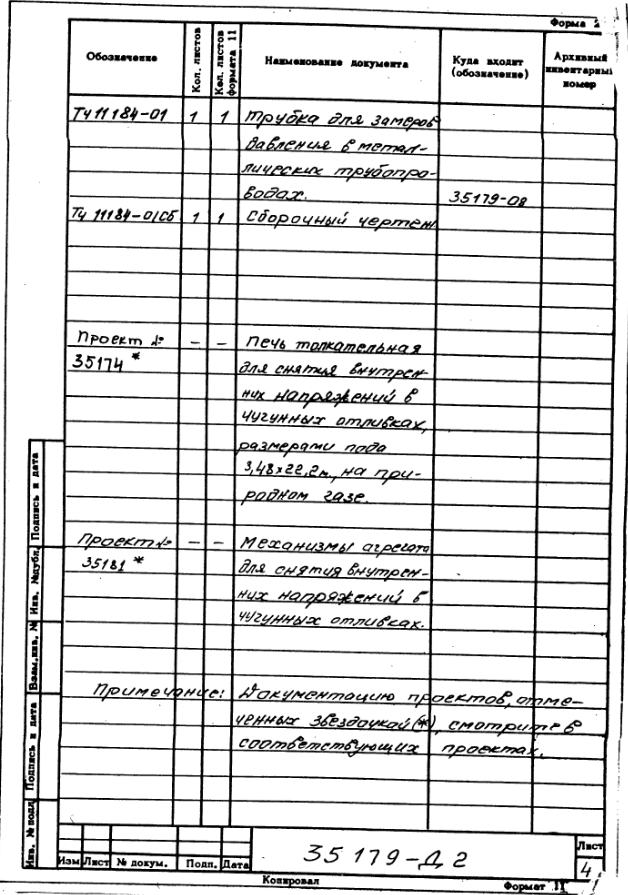 Форма 2
Обозначение Кол. листов Кол. листов формата 11 Наименование документа Куда входит (обозначение) Архивный инвентарный номер
ТЧ 11184-01 1 1 Трубка для замеров
давления в метал-
лических трубопро-
водах. 35179-08
ТЧ 11184-01СБ 1 1 Сборочный чертеж
Проект № - - Печь толкательная
35174 * для снятия внутрен-
них напряжений в
чугунных отливках,
размерами пода
3,48х22,2м, на при-
родном газе.
Проект № - - Механизмы агрегата
35181 * для снятия внутрен-
них напряжений в
чугунных отливках.
Примечание: Документацию проектов, отме-
ченных звездочкой (*), смотрите в
соответствующих проектах.
Инв. № подл. Подпись и дата Взам. инв. № Инв. № дубл. Подпись и дата
Изм Лист № докум. Подп. Дата
35179-Д2
Лист
4
Копировал Формат 11